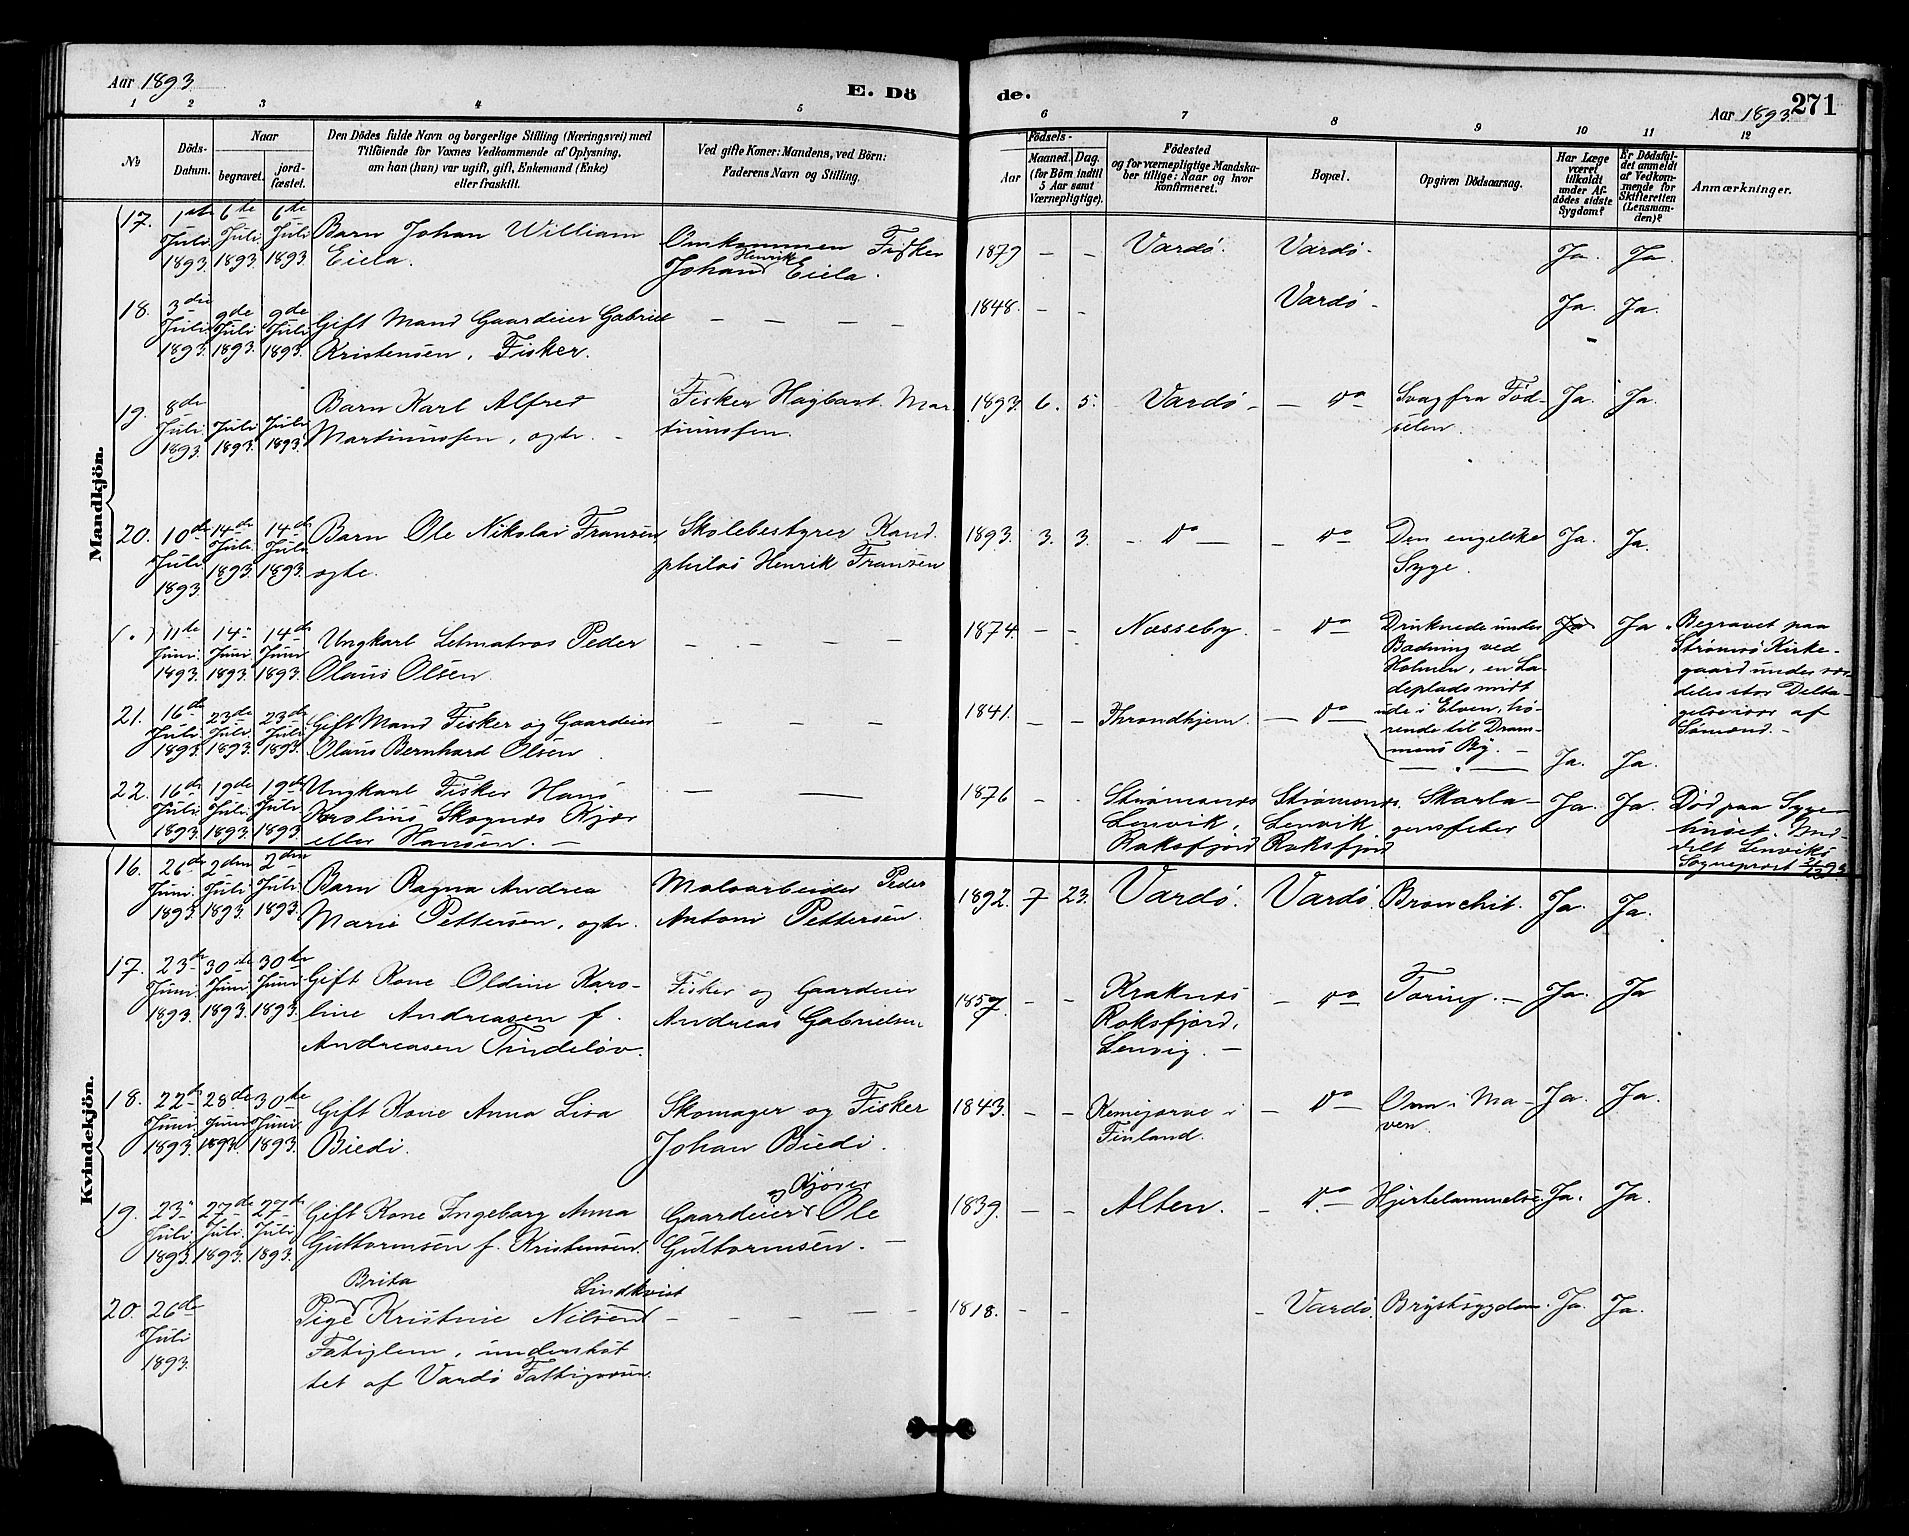 Aar 1893.
E. Dö
de.
Aar 1893.
271
1 2 3 4 5 6 7 8 9 10 11 12
№
Döds-
Datum.
Naar
begravet.
jord-
fæstet.
Den Dödes fulde Navn og borgerlige Stilling (Næringsvei) med
Tilföiende for Voxnes Vedkommende af Oplysning,
om han (hun) var ugift, gift, Enkemand (Enke)
eller fraskilt.
Ved gifte Koner: Mandens, ved Börn:
Faderens Navn og Stilling.
Födsels-
Aar
Maaned. Dag.
(for Börn indtil
5 Aar samt
Værnepligtige).
Födested
og for værnepligtige Mandska-
ber tillige: Naar og hvor
konfirmeret.
Bopæl.
Opgiven Dödsaarsag.
Har Læge
været
tilkaldt
under Af-
dödes sidste
Sygdom?
Er Dödsfal-
det anmeldt
af Vedkom-
mende for
Skifteretten
(Lensman-
den)?
Anmærkninger.
Mandkjön.
17.
1ste
Juli
1893.
6te
Juli
1893.
6te
Juli
1893.
Barn Johan William
Eiela.
Omkommen Fisker
Henrik
Johan Eiela.
1879 - -
Vardø.
Vardø.
Ja. Ja.
18.
3die
Juli
1893.
9de
Juli
1893.
9de
Juli
1893.
Gift Mand Gaardeier Gabriel
Kristensen, Fisker.
- - - -
1848. - -
Vardø.
Ja. Ja.
19.
8de
Juli
1893.
Juli
1893.
Juli
1893.
Barn Karl Alfred
Martinussen, ægte.
Fisker Hagbart Mar-
tinussen.
1893. 6. 5.
Vardø
do
Svag fra Fød-
selen.
Ja. Ja.
20.
10de
Juli
1893.
14de
Juli
1893.
14de
Juli
1893.
Barn Ole Nikolai Fransen
ægte.
Skolebestyrer Kand.
philos Henrik Fransen
1893. 3. 3.
do
do
Den engelske
Syge.
Ja. Ja.
11te
Juni
1893.
14
Juni
1893.
14de
Juni
1893.
Ungkarl Letmatros Peder
Olaus Olsen.
- - - -
1874. - -
Næsseby.
do
Druknede under
Badning ved
Holmen, en La-
deplads midt
ude i Elven, hø-
rende til Dram-
mens By.
Ja Ja.
Begravet paa
Strømsø Kirke-
gaard under sær-
deles stor Delta-
gelse især af
Sømænd.
21.
16de
Juli
1893.
23de
Juli
1893.
23de
Juli
1893.
Gift Mand Fisker og Gaardeier
Olaus Bernhard Olsen
- - -
1841. - -
Throndhjem.
do
Ja. Ja.
22.
16de
Juli
1893.
19de
Juli
1893.
19de
Juli
1893.
Ungkarl Fisker Hans
Karolius Skognæs Kjær
eller Hansen.
1876 - -
Strømsnæs
Lenvik,
Roksfjord
Strømsnæs
Lenvik
Roksfjord
Skarla-
gensfeber
Ja. Ja.
Død paa Syge-
huset. Med-
delt Lenviks
Sogneprest
Kvindekjön.
16.
26de
Juni
1893.
2den
Juli
1893.
2den
Juli
1893.
Barn Ragna Andrea
Marie Pettersen, ægte.
Moloarbeider Peder
Antoni Pettersen.
1892. 7 23.
Vardø.
Vardø.
Bronchit.
Ja. Ja.
17.
23de
Juni
1893.
30te
Juni
1893.
30te
Juni
1893.
Gift Kone Oldine Karo-
line Andreasen f.
Andreasen Tindeløv.
Fisker og Gaardeier
Andreas Gabrielsen
1857 - -
Kraknæs
Roksfjord,
Lenvig.
do
Tæring.
Ja. Ja
18.
22de
Juni
1893.
28de
Juni
1893.
30te
Juni
1893.
Gift Kone Anna Lisa
Biedi.
Skomager og Fisker
Johan Biedi.
1843. - -
Kemijærve i
Finland.
do
Ondt i Ma-
ven.
Ja. Ja.
19.
23
Juli
1893.
27de
Juli
1893.
27de
Juli
1893.
Gift Kone Ingeborg Anna
Guttormsen f. Kristensen.
og Kjører
Gaardeier Ole
Guttormsen.
1839. - -
Alten.
do
Hjertelammelse.
Ja. Ja.
20.
26de
Juli
1893.
Brita Lindkvist
Pige Kristine Nilsen
Fatiglem, understøt
tet af Vardø Fattigvæsen.
- - - - -
1818. - -
Vardø.
Brystsygdom.
Ja. Ja.